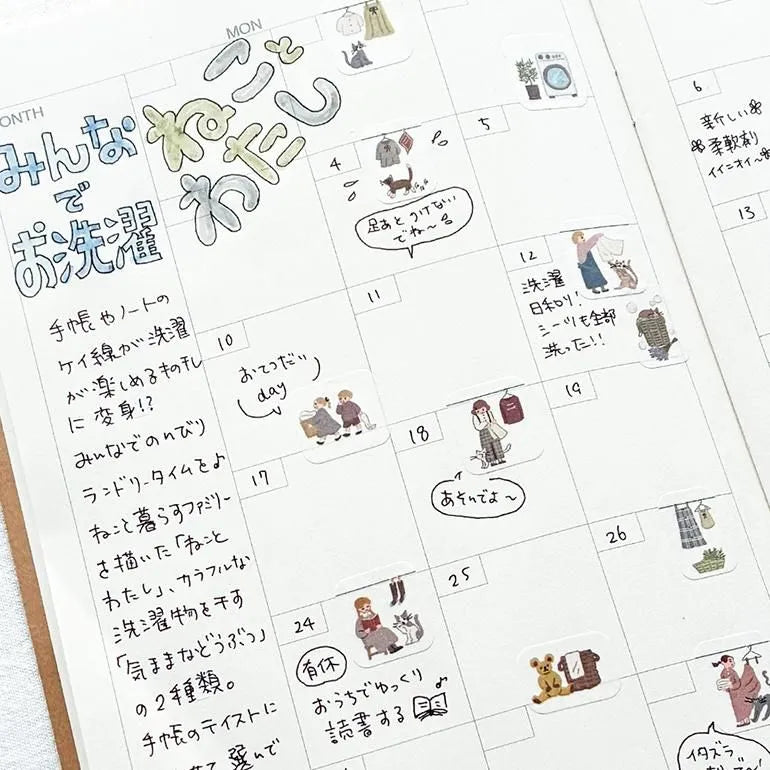 MON
ONTH
みんな
で
お洗濯
ねこと
わたし
手帳やノートの
ケイ線が洗濯
が楽しめるものほし
に変身!?
みんなでのんびり
ランドリータイムをよ
ねこと暮らすファミリー
を描いた「ねこと
わたし」、カラフルな
洗濯物を干す
「気ままなどうぶつ」
の2種類。
手帳のテイストに
選んで
4
足あとつけない
でね〜
5
6
新しい
柔軟剤
イイニオイ〜
10
おてつだい
day
11
12
洗濯
日和り!
シーツも全部
洗った!!
13
17
18
あそんでよ〜
19
24
有休
おうちでゆっくり
読書する
25
26
イタズラ